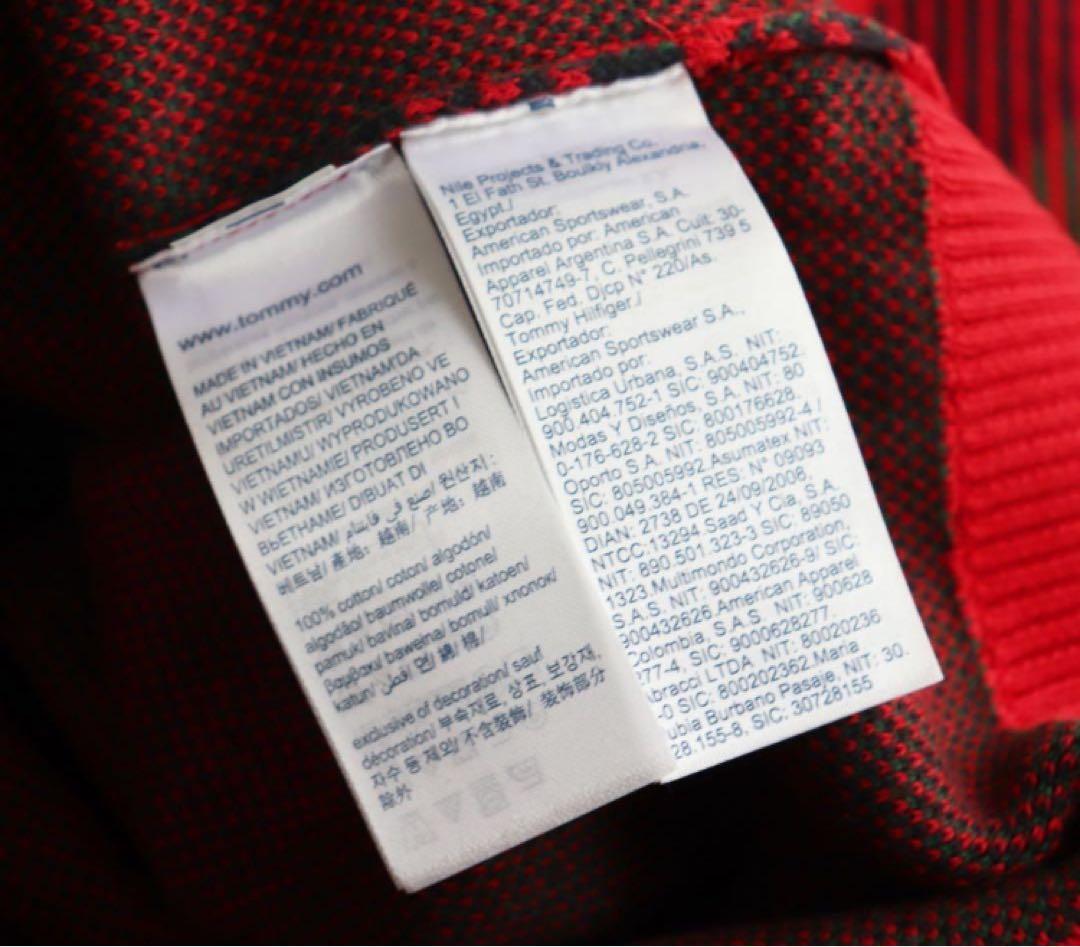 www.tommy.com
MADE IN VIETNAM/ FABRIQUÉ
AU VIETNAM/ HECHO EN
VIETNAM CON INSUMOS
IMPORTADOS/ VIETNAM'DA
URETILMISTIR/ VYROBENO VE
VIETNAMU/ WYPRODUKOWANO
W WIETNAMIE/ PRODUSERT I
VIETNAM/ ИЗГОТОВЛЕНО ВО
ВЬЕТНАМЕ/ DIBUAT DI
VIETNAM/ صنع في فيتنام/ 원산지:
베트남/ 產地: 越南/ 产地: 越南
100% cotton/ coton/ algodón/
algodão/ baumwolle/ cotone/
pamuk/ bavlna/ bomuld/ katoen/
βαμβακι/ bawełna/ bomull/ хлопок/
katun/ قطن/ 면/ 綿/ 棉/
exclusive of decoration/ sauf
décoration/ 부속재료, 상표, 보강재,
자수 등 제외/ 不含裝飾/ 装饰部分
除外
Nile Projects & Trading Co.
1 El Fath St. Boulkly Alexandria,
Egypt./
Exportador:
American Sportswear, S.A.
Importado por: American
Apparel Argentina S.A. Cuit: 30-
70714749-7, C. Pellegrini 739 5
Cap. Fed. Djcp N° 220/As.
Tommy Hilfiger./
Exportador:
American Sportswear S.A.,
Importado por:
Logistica Urbana, S.A.S. NIT:
900.404.752-1 SIC: 900404752.
Modas Y Diseños, S.A. NIT: 80
0-176-628-2 SIC: 800176628.
Oporto S.A. NIT: 805005992-4 /
SIC: 805005992.Asumatex NIT:
900.049.384-1 RES: N° 09093
DIAN: 2738 DE 24/09/2008,
NTCC.13294 Saad Y Cia, S.A.
NIT: 890.501.323-3 SIC: 89050
1323.Multimondo Corporation,
S.A.S. NIT: 900432626-9/ SIC:
900432626.American Apparel
Colombia, S.A.S. NIT: 900628
277-4, SIC: 9000628277.
Abracci LTDA NIT: 80020236
-0 SIC: 800202362.Maria
ubia Burbano Pasaje, NIT: 30.
28.155-8, SIC: 30728155